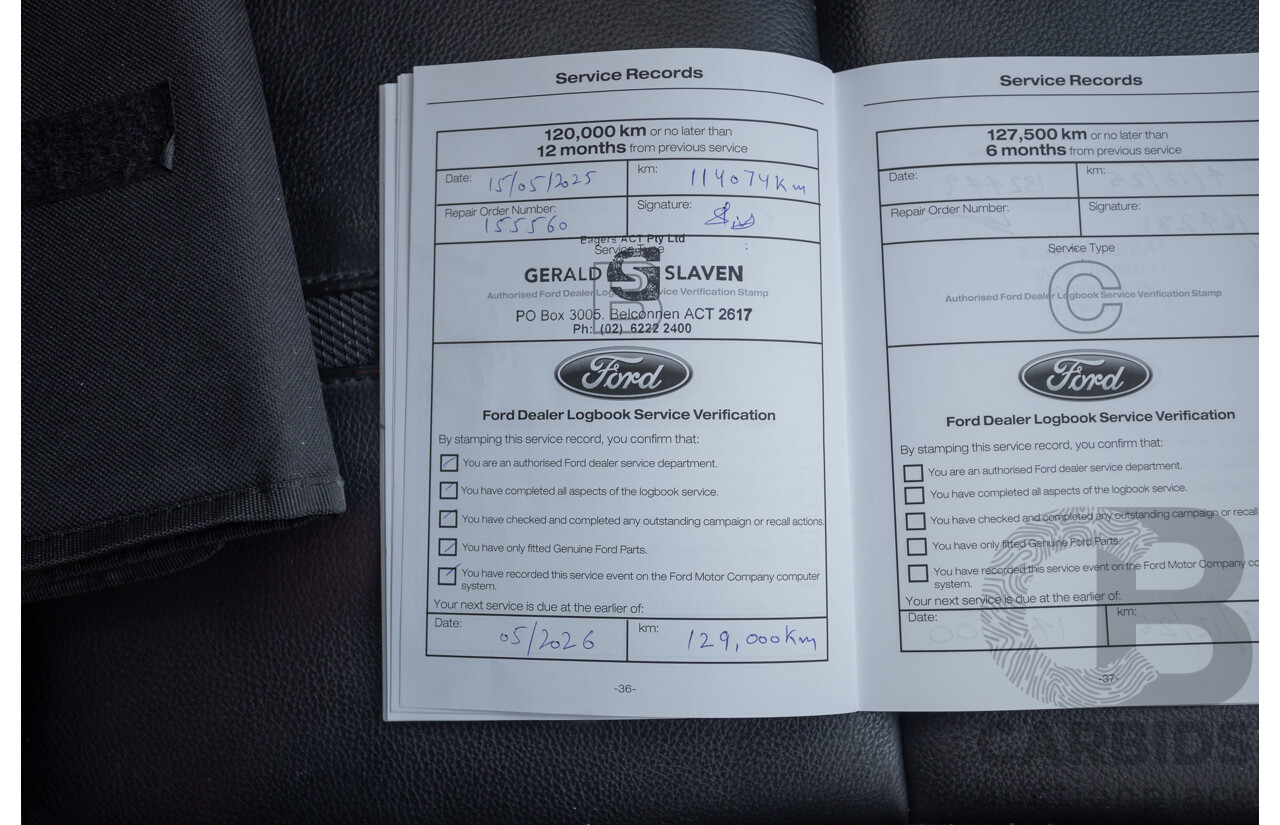 Service Records
120,000 km or no later than
12 months from previous service
Date: 15/05/2025
km: 114074km
Repair Order Number: 155560
Signature:
Eagers ACT Pty Ltd
Service Type
B
GERALD S SLAVEN
Authorised Ford Dealer Logbook Service Verification Stamp
PO Box 3005. Belconnen ACT 2617
Ph: (02) 6222 2400
Ford
Ford Dealer Logbook Service Verification
By stamping this service record, you confirm that:
You are an authorised Ford dealer service department.
You have completed all aspects of the logbook service.
You have checked and completed any outstanding campaign or recall actions.
You have only fitted Genuine Ford Parts.
You have recorded this service event on the Ford Motor Company computer
system.
Your next service is due at the earlier of:
Date: 05/2026
km: 129,000km
-36-
Service Records
127,500 km or no later than
6 months from previous service
Date:
km:
Repair Order Number:
Signature:
Service Type
C
Authorised Ford Dealer Logbook Service Verification Stamp
Ford
Ford Dealer Logbook Service Verification
By stamping this service record, you confirm that:
You are an authorised Ford dealer service department.
You have completed all aspects of the logbook service.
You have checked and completed any outstanding campaign or recall
You have only fitted Genuine Ford Parts.
You have recorded this service event on the Ford Motor Company co
system.
Your next service is due at the earlier of:
Date:
km:
-37-
CARBIDS